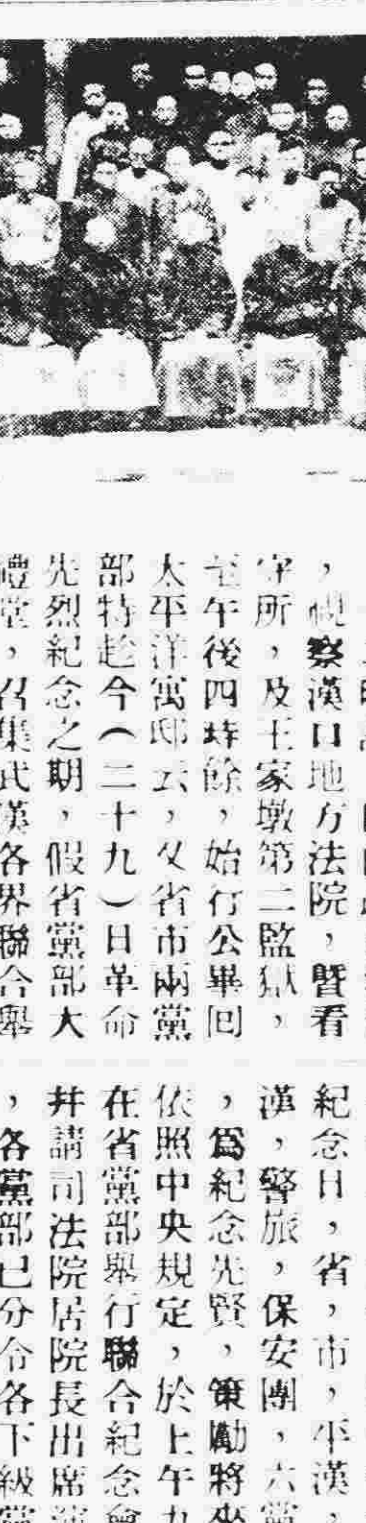 ，視察漢口地方法院，暨看
守所，及王家墩第二監獄，
至午後四時餘，始行公畢回
太平洋寓邸云，又省市兩黨
部特趁今（二十九）日革命
先烈紀念之期，假省黨部大
禮堂，召集武漢各界聯合舉
紀念日，省，市，平漢，
漢，警旅，保安團，六黨
，爲紀念先賢，策勵將來
依照中央規定，於上午九
在省黨部舉行聯合紀念會
并請司法院居院長出席演
，各黨部已分令各下級黨